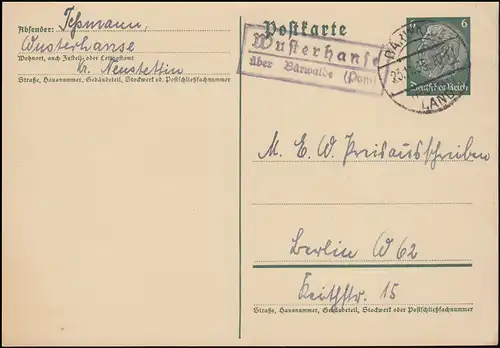 Absender: Teßmann,
Wusterhanse
Wohnort, auch Zustell- oder Leitpostamt
Kr. Neustettin
Straße, Hausnummer, Gebäudeteil, Stockwerk od. Postschließfachnummer
Postkarte
Wusterhanse
über Bärwalde (Pom)
6
Deutsches Reich
LAND
M. E. W. Preisausschreiben
Berlin W 62
Keithstr. 15
Straße, Hausnummer, Gebäudeteil, Stockwerk oder Postschließfachnummer